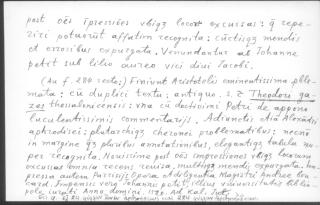 post oēs īpressiões vbiqz locorū excussas: q̄ repe-
riri potuerūt affatim recognita; cūctisqz mendis
et erroribus expurgata. Venundantur ab Johanne
petit sub lilio aureo vici divi Jacobi.
(Au f. 280 recto;) Finiunt Aristotelis eminentissima ple-
mata: cū duplici textu; antiquo. s. z Theodori ga-
zes thessalonicensis: vna cū doctissimi Petri de appono
luculentissimis commentarijs. Adiunctis Alexādri
aphrodisei: plutarchiqz cheronei problematibus; necnō
in margine qz pluribus annotationibus, elegantiqz tabula nu-
per recognita. Nouissime post oēs impressiones vbiqz locorum
excussas omnia recens reuisa, multisqz mendis expurgata. Im-
pressa autem Parrisijs Opera et diligentia Magistri Andree bou-
card. Impensis vero Johannis petit, illius vniuersitatis biblio-
pole iurati Anno domini. 1520. Ad Kal.